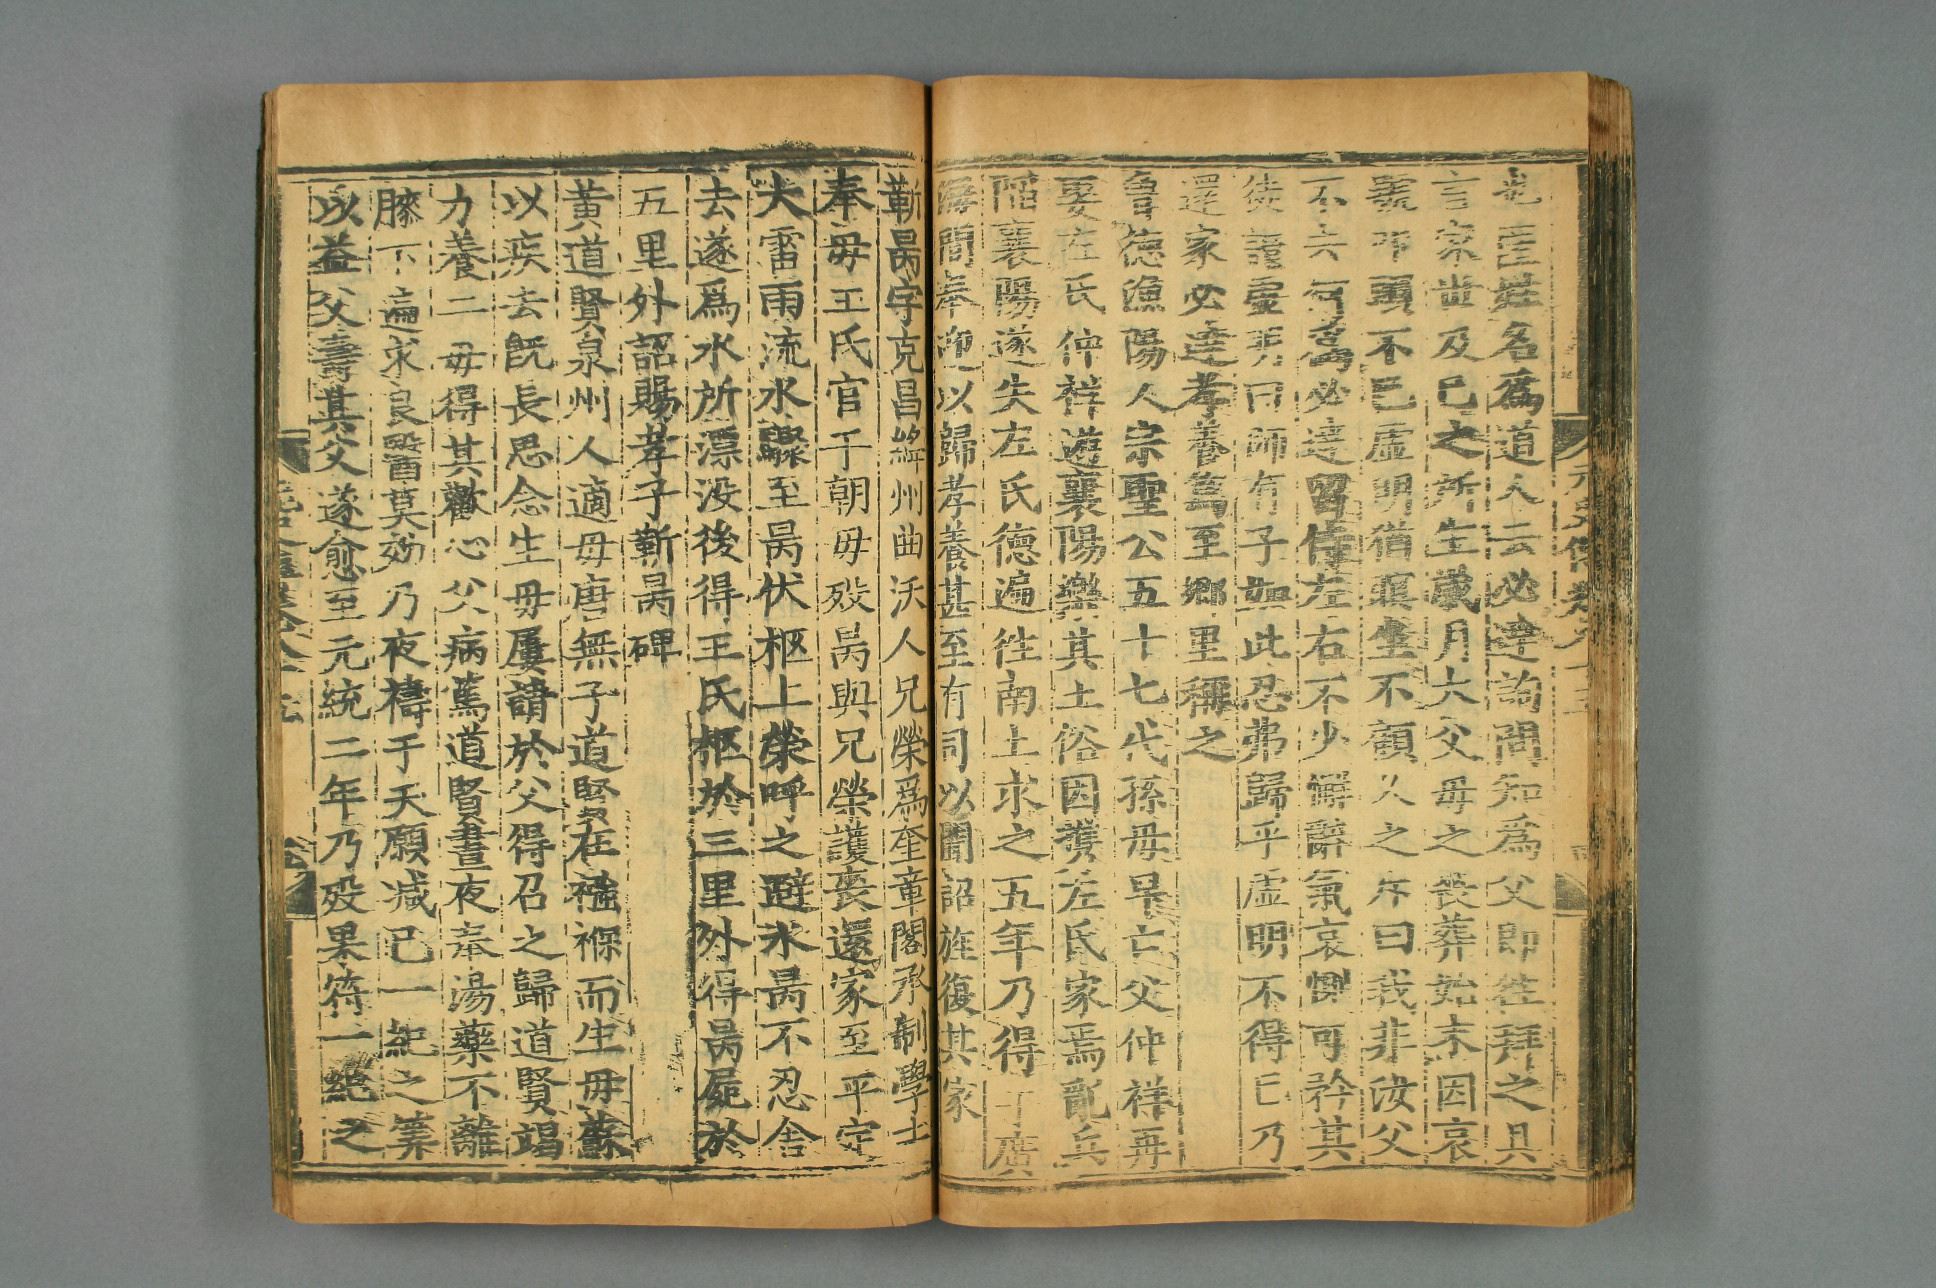 虛無名爲道人云必達詢問知爲父即往拜之具
言家世及已之所生歲月大父母之喪葬始末因哀
號叩頭不已虛明猶瞑坐不顧久之斥曰我非汝父
不去何爲必達留侍左右不少懈辭氣哀惻可矜其
徒謂虛明曰師有子如此忍弗歸乎虛明不得已乃
還家必達孝養篤至鄉里稱之
魯德漁陽人宗聖公五十七代孫母早亡父仲祥再
娶左氏仲祥遊襄陽樂其土俗因携左氏家焉亂兵
陷襄陽遂失左氏德遍往南土求之五年乃得于廣
海間奉迎以歸孝養甚至有司以聞詔旌復其家
靳昺字克昌絳州曲沃人兄榮爲奎章閣承制學士
奉母王氏官于朝母歿昺與兄榮護喪還家至平定
大雷雨流水驟至昺伏柩上榮呼之避水昺不忍舍
去遂爲水所漂没後得王氏柩於三里外得昺屍於
五里外詔賜孝子靳昺碑
黃道賢泉州人適母唐無子道賢在襁褓而生母蘇
以疾去既長思念生母屢請於父得召之歸道賢竭
力養二母得其歡心父病篤道賢晝夜奉湯藥不離
膝下遍求良醫莫効乃夜禱于天願减己一紀之筭
以益父壽其父遂愈至元統二年乃歿果符一紀之